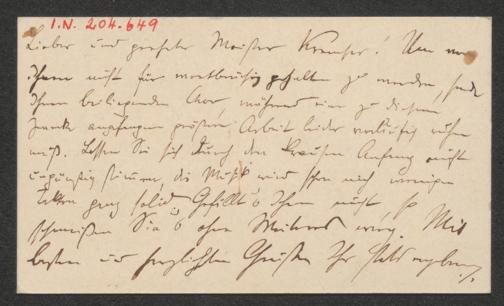 I.N. 204.649
Lieber und geehrter Meister Kremser! Um von
Ihnen nicht für wortbrüchig gehalten zu werden, sende
Ihnen beiliegenden Chor, während eine zu diesem
Zwecke angefangene größere Arbeit leider vorläufig ruhen
muß. Lassen Sie sich durch den krausen Anfang nicht
ungünstig stimmen, die Musik wird schon nach wenigen
Takten ganz solid. Gefällt's Ihnen nicht, so
schmeißen Sie's ohne Weiteres weg. Mit
besten und herzlichsten Grüßen Ihr stets ergebener